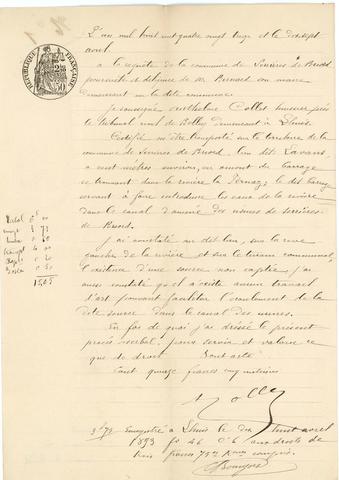 L'an mil huit cent quatre vingt treize et le dix sept
avril.
RÉPUBLIQUE FRANÇAISE
à la requête de la commune de Serrières de Briord,
poursuite et diligence de M. Bernard son maire
demeurant en la dite commune
Je soussigné Anthelme Collet huissier près
le tribunal civil de Belley demeurant à Lhuis.
Certifie m'être transporté sur le territoire de la
commune de Serrières de Briord, lieu dit Lavans,
à cent mètres environ, en amont du barrage
se trouvant dans la rivière la Pernaz, le dit barrage
servant à faire introduire les eaux de la rivière
dans le canal d'amené des usines de Serrières
de Briord.
J'ai constaté au dit lieu, sur la rive
gauche de la rivière et sur le terrain communal,
l'existence d'une source non captée, j'ai
aussi constaté qu'il n'existe aucun travail
d'art pouvant faciliter l'écoulement de la
dite source dans le canal des usines.
En foi de quoi j'ai dressé le présent
procès verbal pour servir et valoir ce
que de droit. Dont acte
Coût quinze francs cinq centimes
Collet
Enregistré à Lhuis le dix huit avril
1893 fo 46 Co 6 aux droits de
trois francs 75c Xmes compris.
15,05